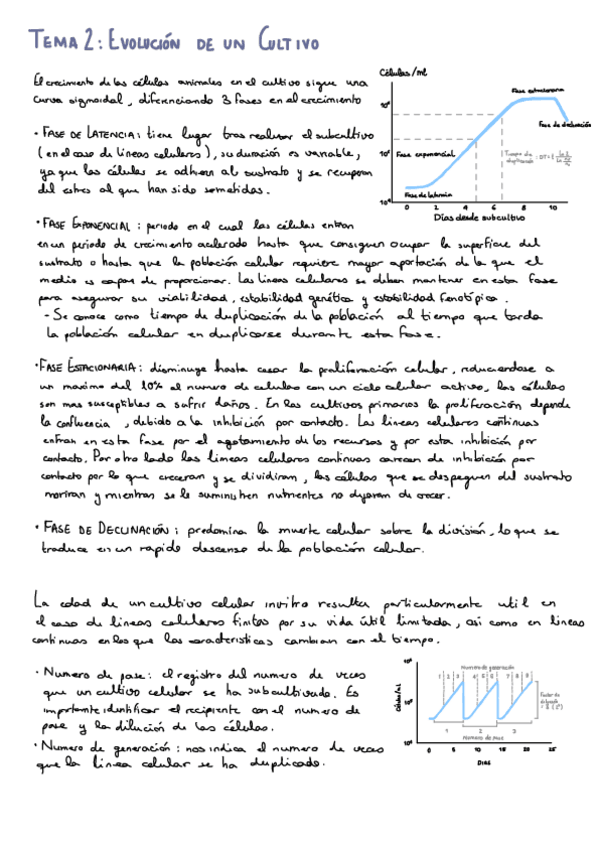 TEMA 2: EVOLUCIÓN DE UN CULTIVO
El crecimiento de las células animales en el cultivo sigue una
curva sigmoidal, diferenciando 3 fases en el crecimiento
· FASE DE LATENCIA: tiene lugar tras realizar el subcultivo
(en el caso de líneas celulares), su duración es variable,
ya que las células se adhieren al sustrato y se recuperan
del estrés al que han sido sometidas.
Células/ml
Fase estacionaria
Fase de declinación
Fase exponencial
Tiempo de
duplicación
Fase de latencia
0 2 4 6 8 10
Días desde subcultivo
· FASE EXPONENCIAL: periodo en el cual las células entran
en un periodo de crecimiento acelerado hasta que consiguen ocupar la superficie del
sustrato o hasta que la población celular requiere mayor aportación de la que el
medio es capaz de proporcionar. Las líneas celulares se deben mantener en esta fase
para asegurar su viabilidad, estabilidad genética y estabilidad fenotípica.
- Se conoce como tiempo de duplicación de la población al tiempo que tarda
la población celular en duplicarse durante esta fase.
· FASE ESTACIONARIA: disminuye hasta cesar la proliferación celular, reduciendose a
un maximo del 10% el numero de celulas con un ciclo celular activo, las células
son mas susceptibles a sufrir daños. En los cultivos primarios la proliferación depende
la confluencia, debido a la inhibición por contacto. Las lineas celulares continuas
entran en esta fase por el agotamiento de los recursos y por esta inhibición por
contacto. Por otro lado las lineas celulares continuas carecen de inhibición por
contacto por lo que creceran y se dividiran, las células que se despeguen del sustrato
moriran y mientras se le suministren nutrientes no dejaran de crecer.
· FASE DE DECLINACIÓN: predomina la muerte celular sobre la división, lo que se
traduce en un rapido descenso de la población celular.
La edad de un cultivo celular invitro resulta particularmente util en
el caso de lineas celulares finitas por su vida útil limitada, asi como en lineas
continuas en los que las caracteristicas cambian con el tiempo.
· Numero de pase: el registro del numero de veces
que un cultivo celular se ha subcultivado. Es
importante identificar el recipiente con el numero de
pase y la dilución de las células.
· Numero de generación: nos indica el numero de veces
que la linea celular se ha duplicado.
Numero de generación
1 2 3 4 5 6 7 8 9
Células/mL
Factor de
1 2 3
Numero de pase
0 5 10 15 20 25
DIAS